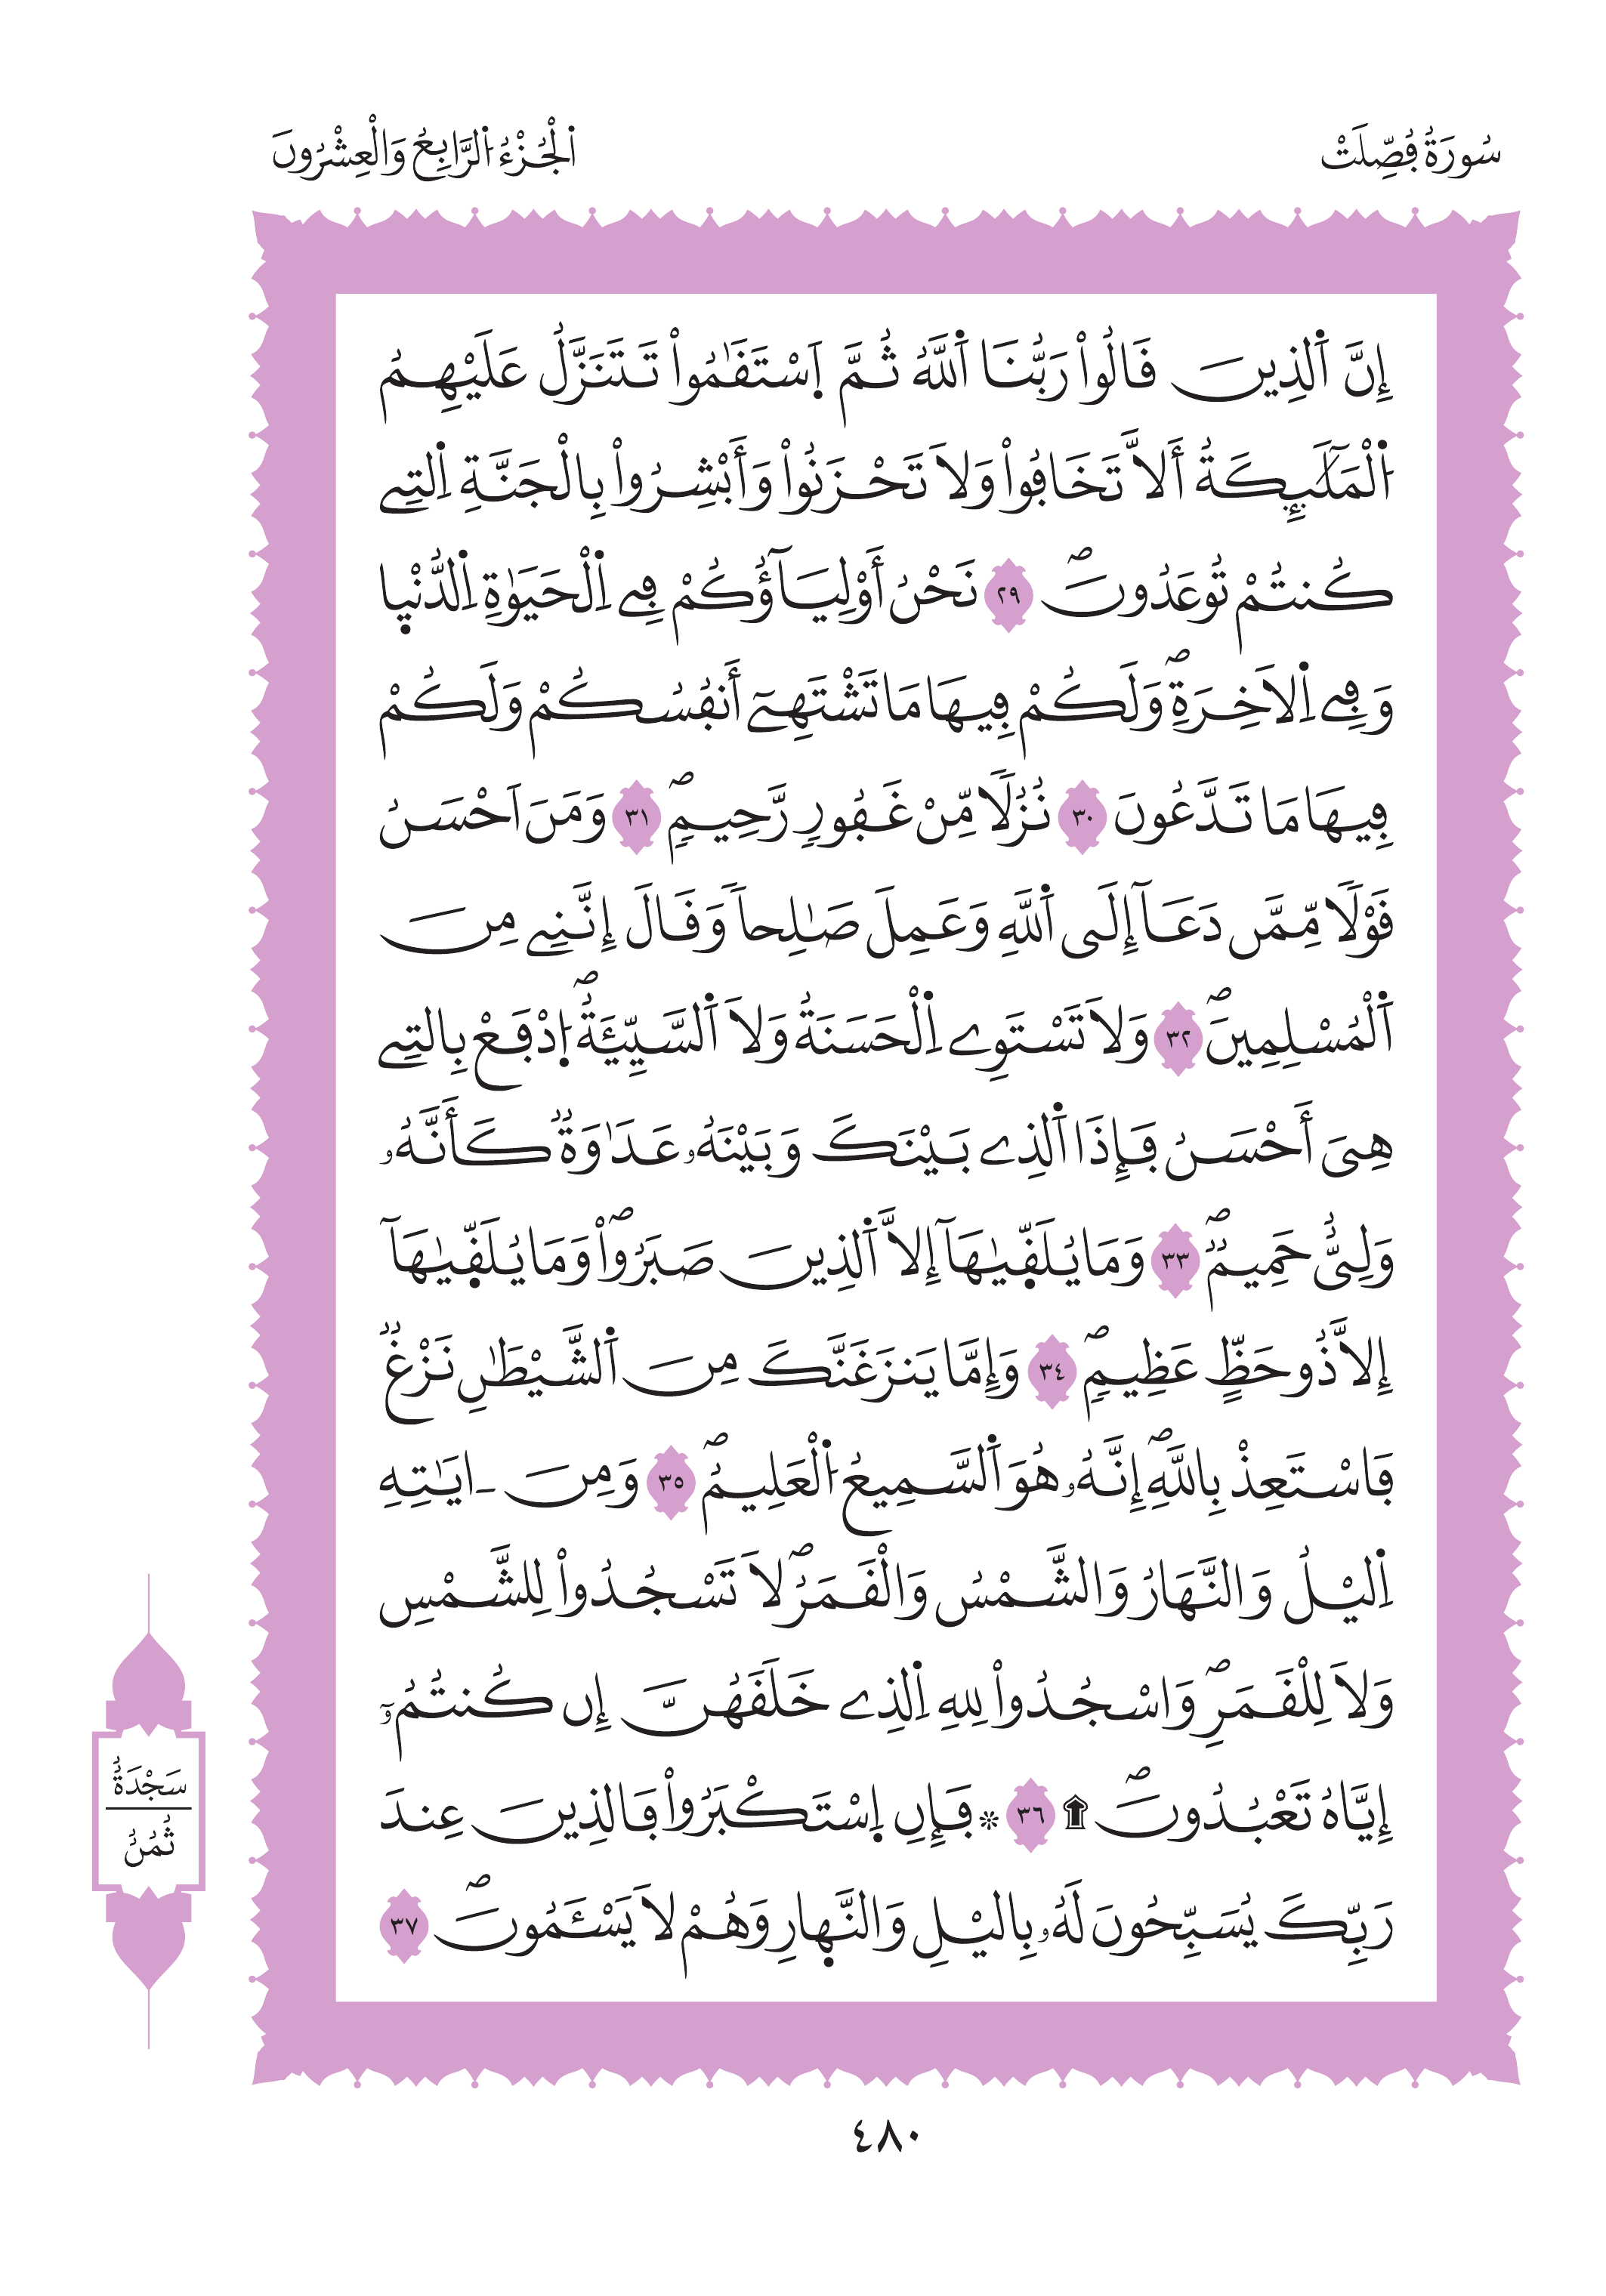 سُورَةُ فُصِّلَتْ
اَلْجُزْءُ اُلرَّابِعُ وَالْعِشْرُونَ
إِنَّ اَلذِينَ قَالُواْ رَبُّنَا اَللَّهُ ثُمَّ اَسْتَقَٰمُواْ تَتَنَزَّلُ عَلَيْهِمُ
اُلْمَلَٰٓئِكَةُ أَلَّا تَخَافُواْ وَلَا تَحْزَنُواْ وَأَبْشِرُواْ بِالْجَنَّةِ اِلتِے
كُنتُمْ تُوعَدُونَۖ ٢٩ نَحْنُ أَوْلِيَآؤُكُمْ فِے اِلْحَيَوٰةِ اِلدُّنْيا
وَفِے اِلَاخِرَةِۖ وَلَكُمْ فِيهَا مَا تَشْتَهِےٓ أَنفُسُكُمْ وَلَكُمْ
فِيهَا مَا تَدَّعُونَ ٣٠ نُزُلًا مِّنْ غَفُورٍ رَّحِيمٍۖ ٣١ وَمَنَ اَحْسَنُ
قَوْلًا مِّمَّن دَعَآ إِلَى اَللَّهِ وَعَمِلَ صَٰلِحاً وَقَالَ إِنَّنِے مِنَ
اَلْمُسْلِمِينَۖ ٣٢ وَلَا تَسْتَوِے اِلْحَسَنَةُ وَلَا اَلسَّيِّئَةُۖ اُ۪دْفَعْ بِالتِے
هِىَ أَحْسَنُ فَإِذَا اَلذِے بَيْنَكَ وَبَيْنَهُۥ عَدَٰوَةٌ كَأَنَّهُۥ
وَلِىٌّ حَمِيمٌۖ ٣٣ وَمَا يُلَقّ۪يٰهَآ إِلَّا اَلذِينَ صَبَرُواْۖ وَمَا يُلَقّ۪يٰهَآ
إِلَّا ذُو حَظٍّ عَظِيمٍۖ ٣٤ وَإِمَّا يَنزَغَنَّكَ مِنَ اَلشَّيْطَٰنِ نَزْغٌ
فَاسْتَعِذْ بِاللَّهِۖ إِنَّهُۥ هُوَ اَلسَّمِيعُ اُلْعَلِيمُۖ ٣٥ وَمِنَ ـ۬ايَٰتِهِ
اِليْلُ وَالنَّهَارُ وَالشَّمْسُ وَالْقَمَرُۖ لَا تَسْجُدُواْ لِلشَّمْسِ
وَلَا لِلْقَمَرِۖ وَاسْجُدُواْ لِلهِ اِلذِے خَلَقَهُنَّ إِن كُنتُمُۥٓ
إِيَّاهُ تَعْبُدُونَۖ ۩ ٣٦ ۞ فَإِنِ اِ۪سْتَكْبَرُواْ فَالذِينَ عِندَ
رَبِّكَ يُسَبِّحُونَ لَهُۥ بِاليْلِ وَالنَّه۪ارِ وَهُمْ لَا يَسْـَٔمُونَۖ ٣٧
سَجْدَةٌ
ثُمُنُ
٤٨٠